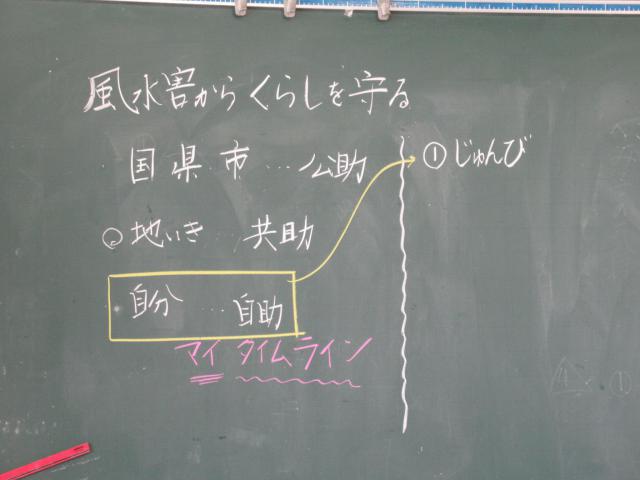 風水害からくらしを守る
国 県 市 … 公助
地いき … 共助
自分 … 自助
マイタイムライン
①じゅんび